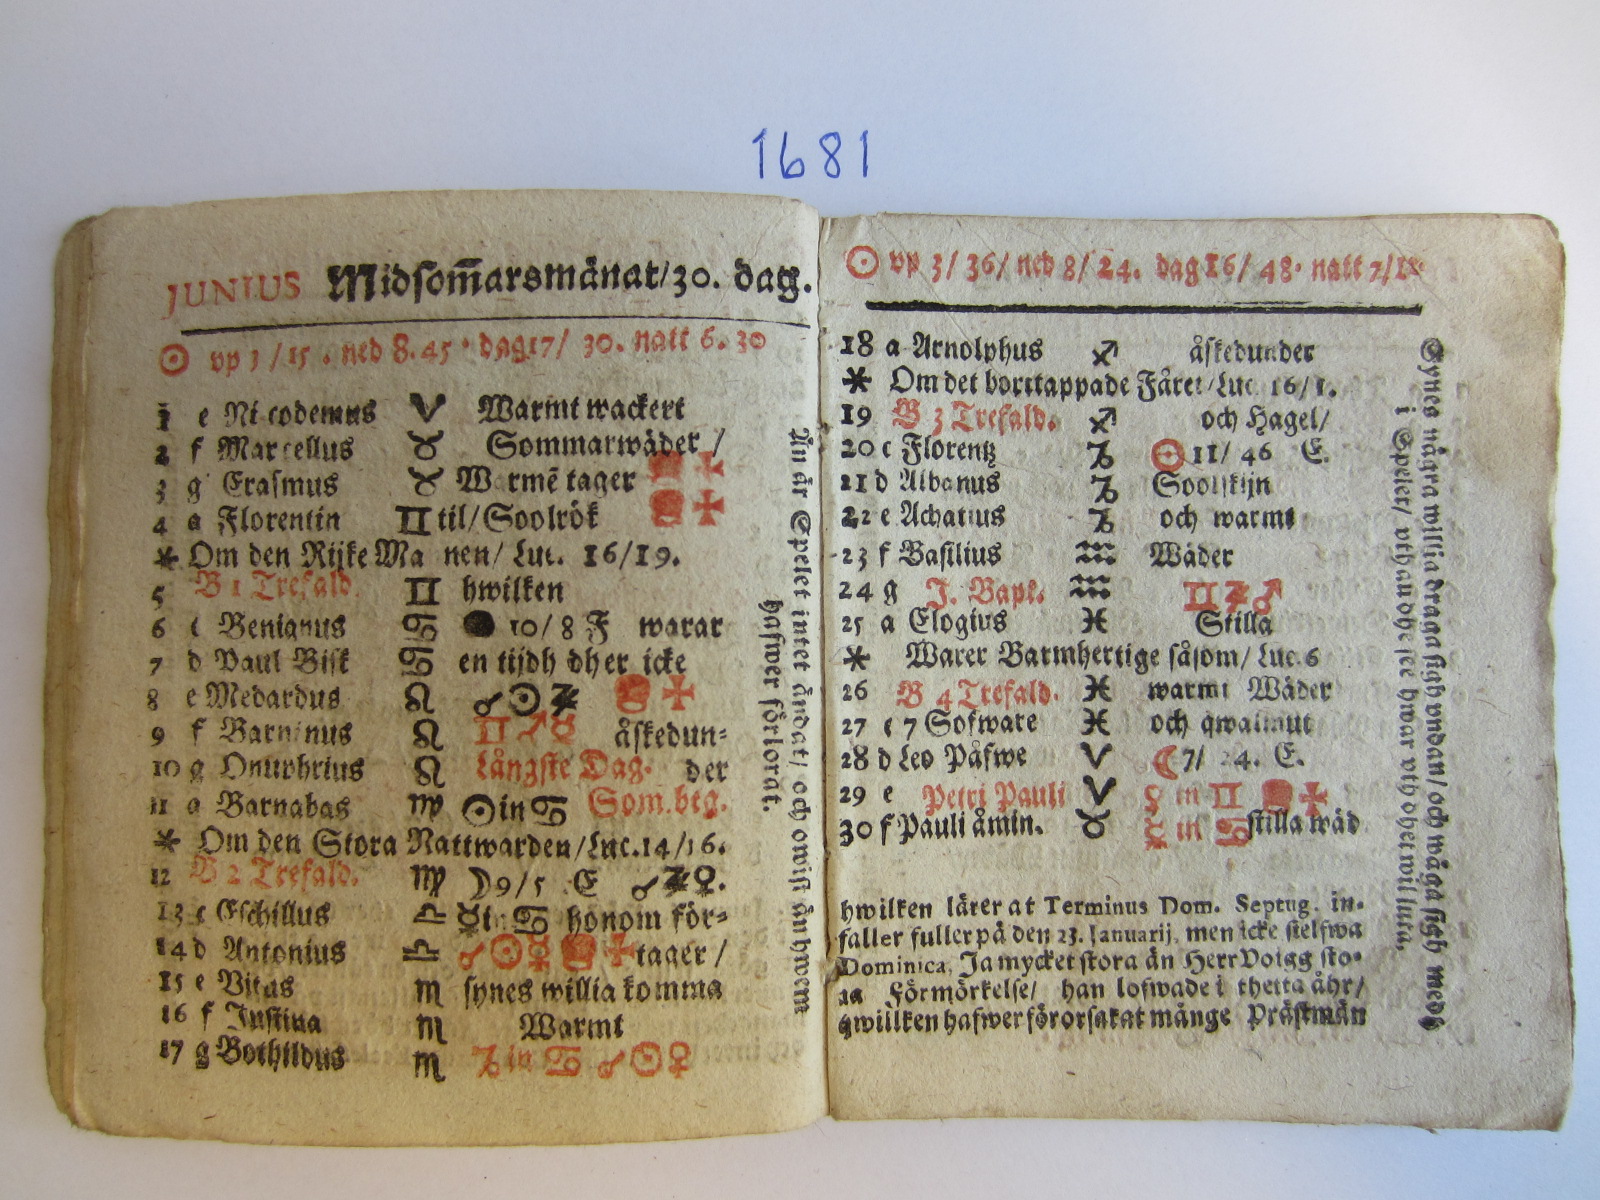 1681
JUNIUS Midsom̄arsmånat/30. dag.
☉ vp 3/15. ned 8.45. dag17/ 30. natt 6.30
1 e Nicodemus ♈ Warmt wackert
2 f Marcellus ♉ Sommarwäder /
3 g Erasmus ♉ Warmē tager
4 a Florentin ♊ til/Soolrök
* Om den Rijke Mannen/ Luc. 16/19.
5 B 1 Trefald. ♊ hwilken
6 c Benignus ♋ ● 10/8 F warar
7 d Paul Bisk ♋ en tijdh dher icke
8 e Medardus ♌ ☌☉♃
9 f Barninus ♌ ♊♂☿ åskedun=
10 g Onuphrius ♌ Långste Dag. der
11 a Barnabas ♍ ☉in♋ Som.beg.
* Om den Stora Nattwarden/Luc.14/16.
12 B 2 Trefald. ♍ ☽9/5 E ☌♃♀.
13 c Eschillus ♎ ☿in ♋ honom för=
14 d Antonius ♎ ☌☉☿ tager /
15 e Vitus ♏ synes willia komma
16 f Justina ♏ Warmt
17 g Bothildus ♏ in ♋ ☌☉♀
Än är Spelet intet ändat/ och owist än hwem
hafwer förlorat.
☉ vp 3/36/ ned 8/24. dag16/48. natt 7/12
18 a Arnolphus ♐ åskedunder
* Om det borttappade Fåret/Luc. 16/1.
19 B 3 Trefald. ♐ och Hagel/
20 c Florentz ♑ ☉11/46 E.
21 d Albanus ♑ Soolskijn
22 e Achatius ♑ och warmt
23 f Basilius ♒ Wäder
24 g J. Bapt. ♒ ♊♃♂
25 a Elogius ♓ Stilla
* Warer Barmhertige såsom/Luc.6
26 B 4 Trefald. ♓ warmt Wäder
27 c 7 Sofware ♓ och qwalmut
28 d Leo Påfwe ♈ ☾7/ 24. E.
29 e Petri Pauli ♈ ♀ in ♊
30 f Pauli åmin. ♉ ☿ in ♋ stilla wäd
hwilken lärer at Terminus Dom. Septug. in-
faller fuller på den 23. Januarij, men icke stelfwa
Dominica, Ja mycket stora än Herr Voigg sto-
ra Förmörkelse/ han lofwade i thetta åhr/
qwilken hafwer förorsakat månge Prästmän
Synes några willia draga sigh undan/ och wåga sigh medh
i Spelet/